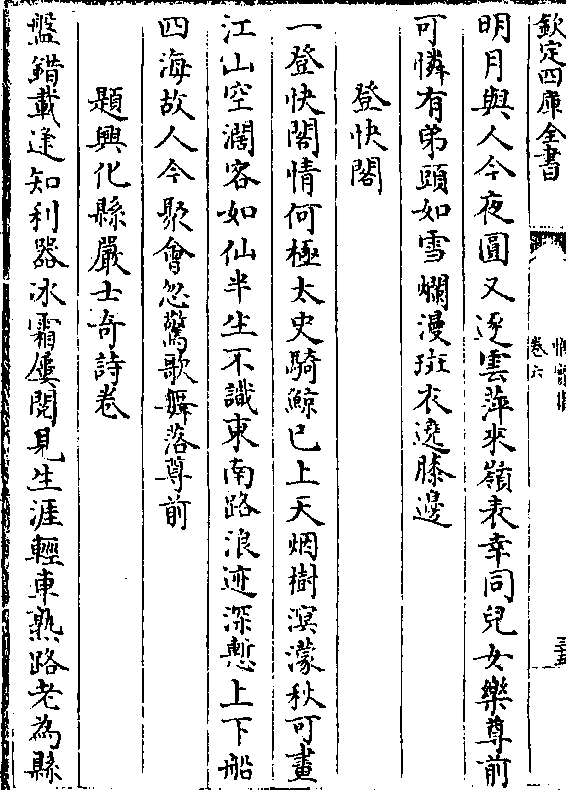 欽定四庫全書
卷六
明月與人今夜圓又逐雲萍來嶺表幸同兒女樂尊前
可憐有弟頭如雪爛漫斑衣遶膝邊
登快閣
一登快閣情何極太史騎鯨已上天烟樹溟濛秋可畫
江山空濶客如仙半生不識東南路浪迹深慙上下船
四海故人今聚會忽驚歌舞落尊前
題興化縣嚴士奇詩卷
盤錯載逢知利器冰霜屢閱見生涯輕車熟路老為縣